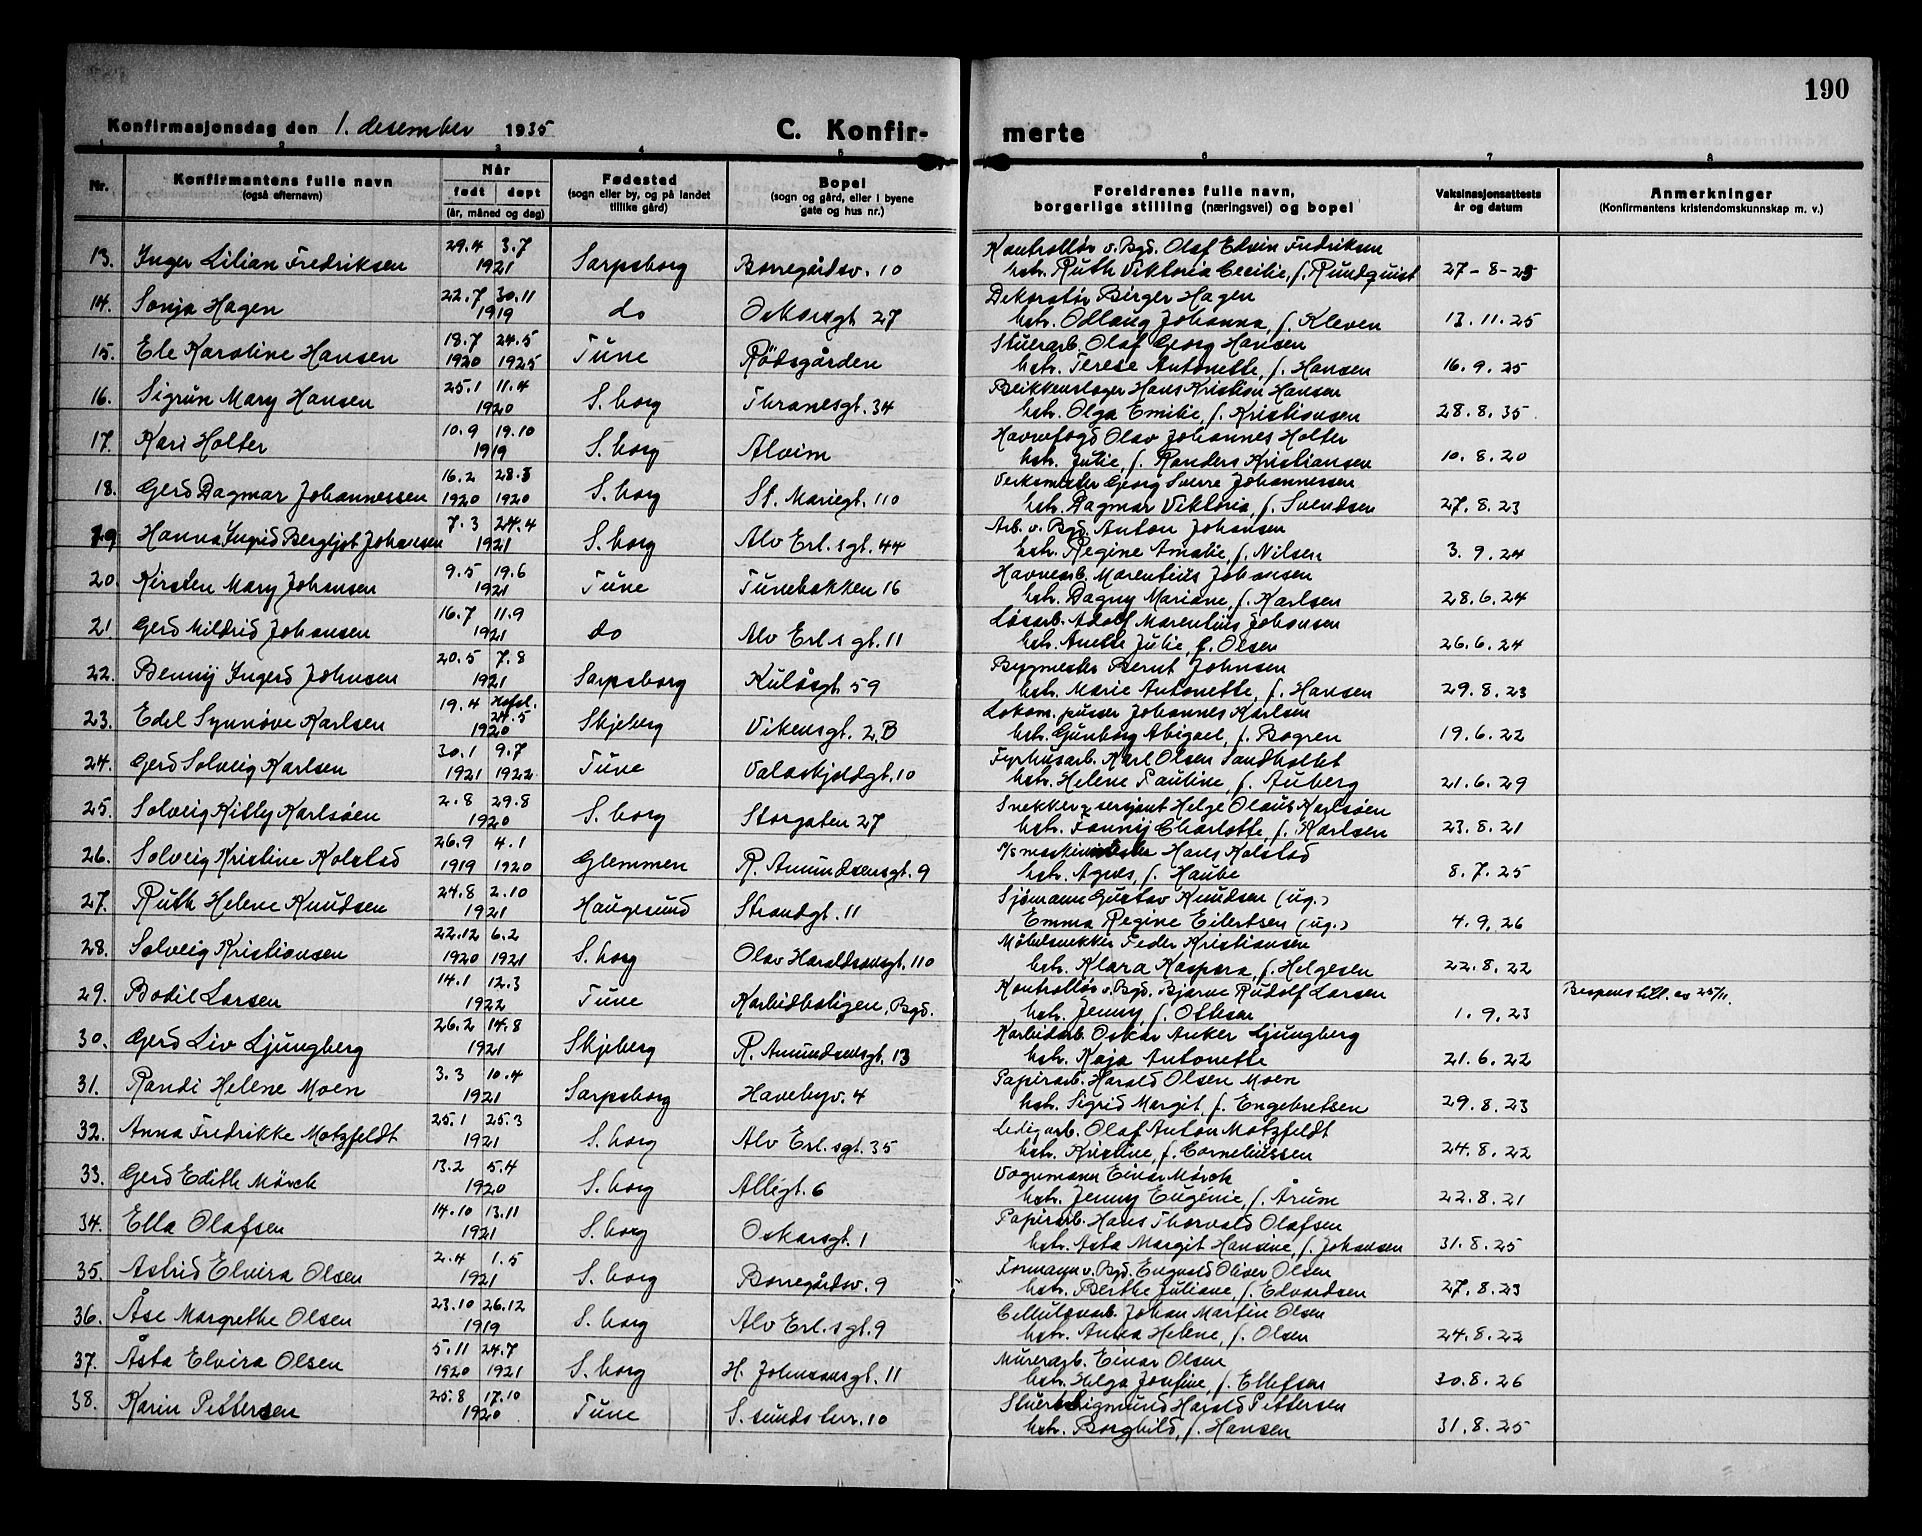 190
Konfirmasjonsdag den 1. desember 1935 C. Konfirmerte
1 2 3 4 5 6 7 8
Nr. Konfirmantens fulle navn (også efternavn) Når født døpt (år, måned og dag) Fødested (sogn eller by, og på landet tillike gård) Bopel (sogn og gård, eller i byene gate og hus nr.) Foreldrenes fulle navn, borgerlige stilling (næringsvei) og bopel Vaksinasjonsattests år og datum Anmerkninger (Konfirmantens kristendomskunnskap m. v.)
29.4 3.7 Kontrollør v. Bgd. Olaf Edvin Fredriksen
13. Inger Lilian Fredriksen 1921 Sarpsborg Borregårdsv. 10 hstr. Ruth Viktoria Cecilie, f. Rundquist 27-8-25
22.7 30.11 Dekoratør Birger Hagen
14. Sonja Hagen 1919 do Oskarsgt 27 hstr. Odlaug Johanna, f. Kleven 13.11.25
18.7 24.5 Stuerarb. Olaf Georg Hansen
15. Ele Karoline Hansen 1920 1925 Tune Rödsgården hstr. Terese Antonette, f. Hansen 16.9.25
25.1 11.4 Blikkenslager Hans Kristian Hansen
16. Sigrun Mary Hansen 1920 S.borg Thranesgt. 34 hstr. Olga Emilie, f. Kristiansen 28.8.35.
10.9 19.10 Havnefogd Olav Johannes Holter
17. Kari Holter 1919 S.borg Alvim hstr. Julie, f. Randers Kristiansen 10.8.20
16.2 28.3 Verksmester Georg Sverre Johannessen
18. Gerd Dagmar Johannessen 1920 1920 S.borg St. Mariegt. 110 hstr. Dagmar Viktoria, f. Svendsen 27.8.23
7.3 24.4 Arb. v. Bgd. Anton Johansen
19 Hanna Ingrid Bergljot Johansen 1921 S.borg Alv Erl.sgt. 44 hstr. Regine Amalie, f. Nilsen 3.9.24
9.5 19.6 Havnearb. Marentius Johansen
20. Kirsten Mary Johansen 1921 Tune Tunebakken 16 hstr. Dagny Mariane, f. Karlsen 28.6.24
16.7 11.9 Løsarb. Adolf Marentius Johansen
21 Gerd Mildrid Johansen 1921 do Alv Erl.sgt. 11 hstr. Anette Julie, f. Olsen 26.6.24
20.5 7.8 Bygmester Bernt Johnsen
22. Benny Ingerd Johnsen 1921 Sarpsborg Kulåsgt. 59 hstr. Marie Antonette, f. Hansen 29.8.23
19.4 Stafst. 24.5 Lokom.pusser Johannes Karlsen
23. Edel Synnøve Karlsen 1920 Skjeberg Vikensgt. 2.B hstr. Gunborg Abigael, f. Bogren 19.6.22
30.1 9.7 Fyrhusarb. Karl Olsen Sandholtet
24. Gerd Solveig Karlsen 1921 1922 Tune Valaskjoldgt. 10 hstr. Helene Pauline, f. Auberg 21.6.29
2.8 29.8 Snekker & sersjant Helge Olaus Karlsøen
25. Solveig Kitty Karlsøen 1920 S.borg Storgaten 27 hstr. Fanny Charlotte, f. Karlsen 23.8.21
26.9 4.1 Hans Kolstad
26. Solveig Kristine Kolstad 1919 1920 Glemmen R. Amundsensgt. 9 hstr. Agnes, f. Haube 8.7.25
24.8 2.10 Sjømann Gustav Knudsen (ug.)
27. Ruth Helene Knudsen 1921 Haugesund Strandgt. 11 Emma Regine Eilertsen (ug.) 4.9.26
22.12 6.2 Møbelsnekker Peder Kristiansen
28. Solveig Kristiansen 1920 1921 S.borg Olav Haraldsonsgt. 110 hstr. Klara Kaspara, f. Helgesen 22.8.22
14.1 12.3 Kontrollør v. Bgd. Bjarne Rudolf Larsen
29. Bodil Larsen 1922 Tune Karbidboligen, Bgd. hstr. Jenny f. Olsen 1.9.23 Dispens. till. av 25/11.
26.2 14.8 Karbidarb. Oskar Anker Ljungberg
30. Gerd Liv Ljungberg 1921 Skjeberg R. Amundsensgt. 13 hstr. Kaja Antonette 21.6.22
3.3 10.4 Papirarb. Harald Olsen Moen
31. Randi Helene Moen 1921 Sarpsborg Havebyv. 4 hstr. Sigrid Margit, f. Engebretsen 29.8.23
25.1 25.3 Ledigarb. Olaf Anton Motzfeldt
32. Anna Fredrikke Motzfeldt 1921 S.borg Alv Erl.sgt. 35 hstr. Kristine, f. Corneliussen 24.8.22
13.2 5.4 Vognmann Einar Mörck
33. Gerd Edith Mörck 1920 S.borg Allégt. 6 hstr. Jenny Eugénie, f. Årum 22.8.21
14.10 13.11 Papirarb. Hans Thorvald Olafsen
34. Ella Olafsen 1921 S.borg Oskarsgt. 1 hstr. Asta Margit Hansine, f. Johansen 31.8.25
2.4 1.5 Formann v. Bgd. Engvald Oliver Olsen
35. Astrid Elvira Olsen 1921 S.borg Borregårdsv. 9 hstr. Berthe Juliane, f. Edvardsen 27.8.23
23.10 26.12 Cellulosearb. Johan Martin Olsen
36. Åse Margrethe Olsen 1919 S.borg Alv Erl.sgt. 9 hstr. Anna Helene, f. Olsen 24.8.22
5.11 24.7 Murerarb. Einar Olsen
37. Åsta Elvira Olsen 1920 1921 S.borg H. Johnsonsgt. 11 hstr. Helga Josefine, f. Ellefsen 30.8.26
25.8 17.10 Stuerb. Sigmund Harald Pettersen
38. Karin Pettersen 1920 Tune S.sunds brr. 10 hstr. Borghild, f. Hansen 31.8.25